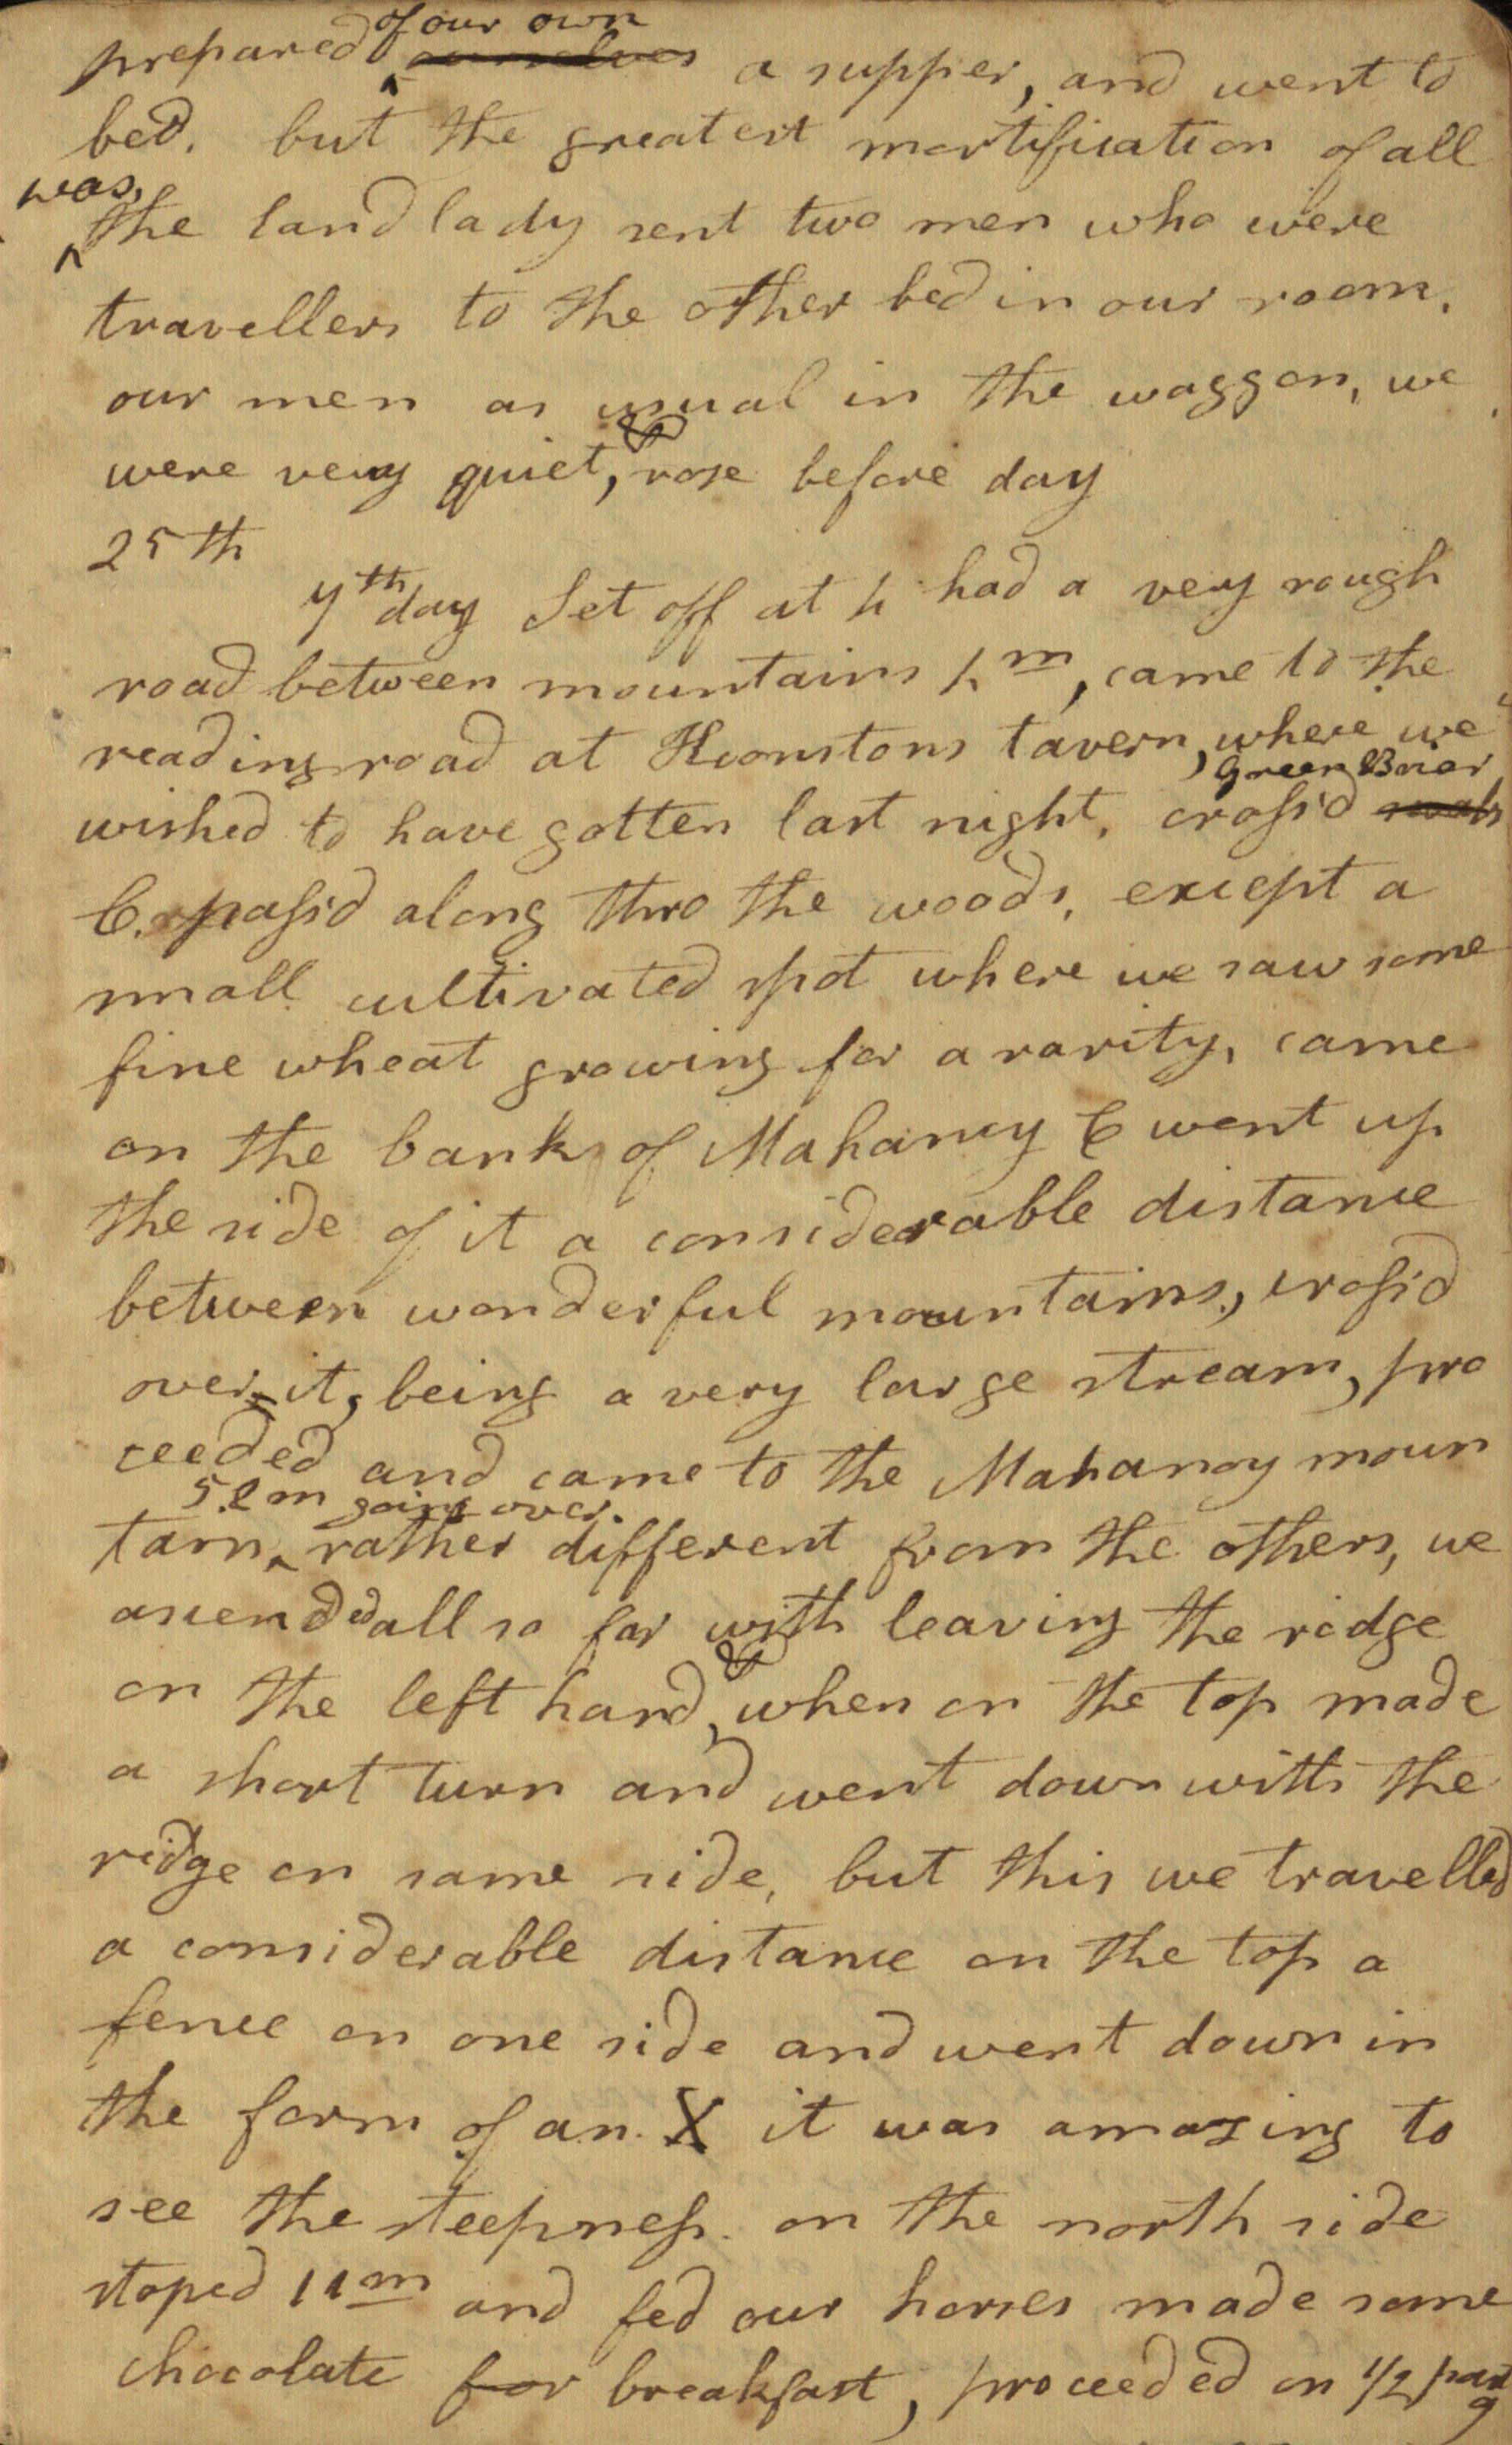 prepared ^of our own ourselves a supper, and went to
bed. but the greatest mortification of all
^was, the landlady sent two men who were
travellers to the other bed in our room.
our men as usual in the waggon, we
were very quiet, & rose before day
25th
7th day Set off at 4 had a very rough
road between mountains 4m, came to the
reading road at Kronstons tavern, where we
wished to have gotten last night. crossd Green Brier
C. passd along thro the woods, except a
small cultivated spot where we saw some
fine wheat growing for a rarity, came
on the banks of Mahancy C went up
the side of it a considerable distance
between wonderful mountains, crossd
over it, being a very large stream, pro
ceeded and came to the Mahanoy moun
tain ^5.2m going over. rather different from the others, we
ascended all so far with leaving the ridge
on the left hand, & when on the top made
a short turn and went down with the
ridge on same side, but this we travelled
a considerable distance on the top a
fence on one side and went down in
the form of an X it was amazing to
see the steepness on the north side
stoped 11m and fed our horses made some
chocolate for breakfast, proceeded on 1/2 past
9